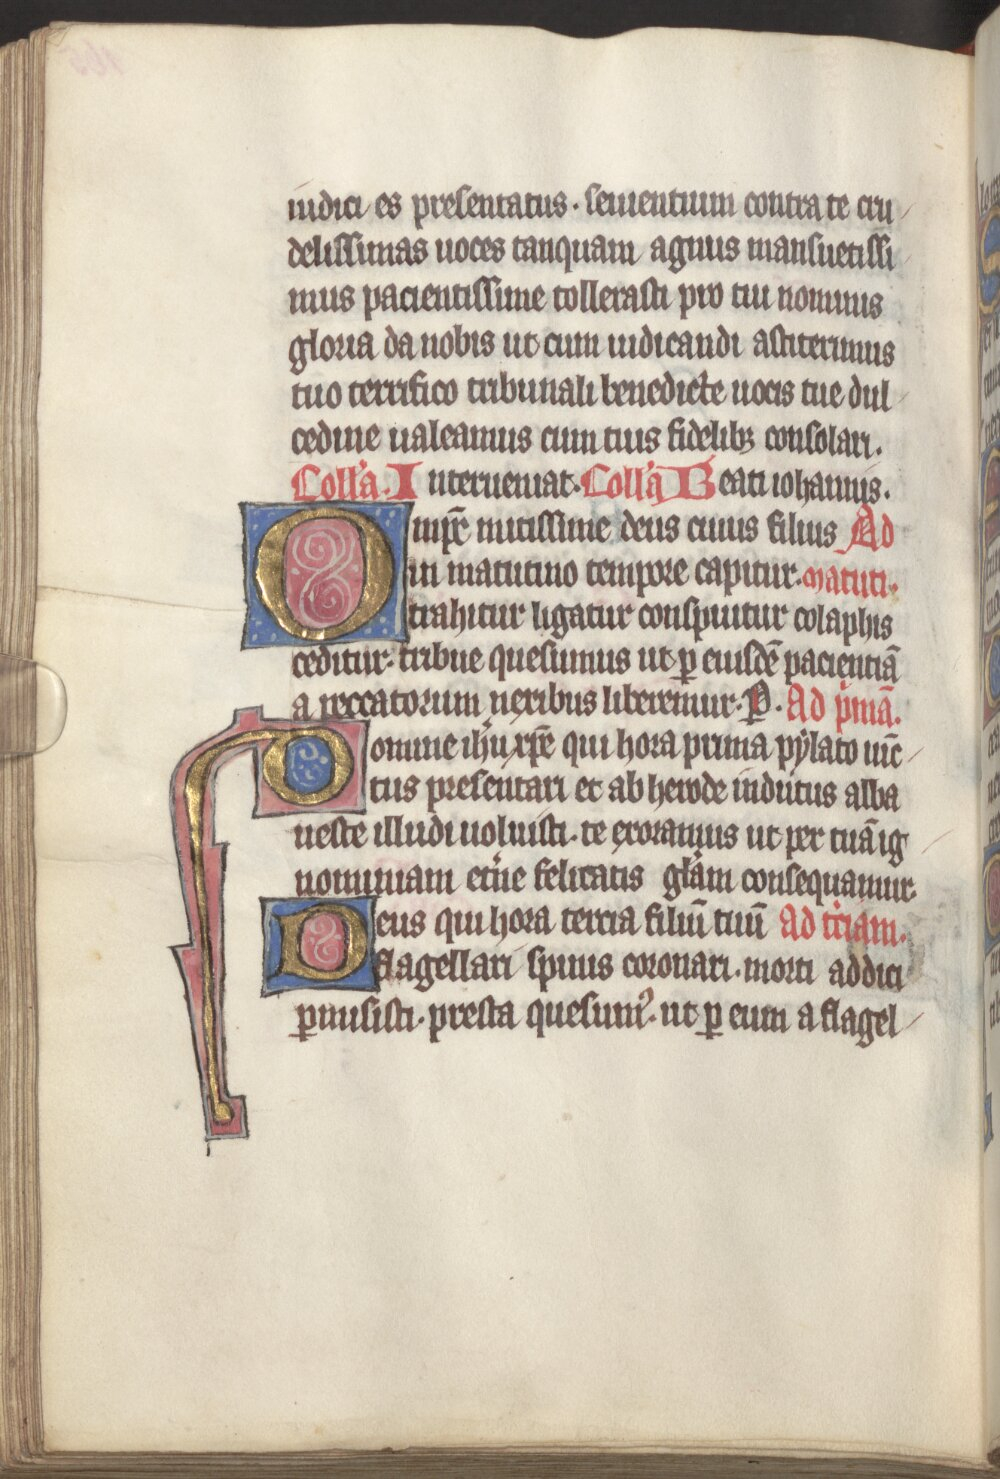 iudici es presentatus · seuientium contra te cru
delissimas uoces tanquam agnus mansuetissi
mus pacientissime tollerasti pro tui nominis
gloria da nobis ut cum iudicandi astiterimus
tuo terrifico tribunali benedicte uocis tue dul
cedine ualeamus cum tuis fidelibꝫ consolari.
Coll'a. Interueniat. Coll'a Beati iohannis.
Omp̄r mitissime deus cuius filius Ad
in matutino tempore capitur. matuti.
trahitur ligatur conspuitur colaphis
ceditur. tribue quesumus ut ꝑ eiusdē pacientiā
a peccatorum nexibus liberemur. P. Ad p'mā.
Domine ih'u xp̄e qui hora prima pylato uīc
tus presentari et ab herode indutus alba
ueste illudi uoluisti. te exoramus ut per tuā ig
nominiam et'ne felicitatis gl'am consequamur
Deus qui hora tercia filiū tuū Ad t'ciam.
flagellari spinis coronari. morti addici
ꝑmisisti. presta quesumꝰ. ut ꝑ eum a flagel